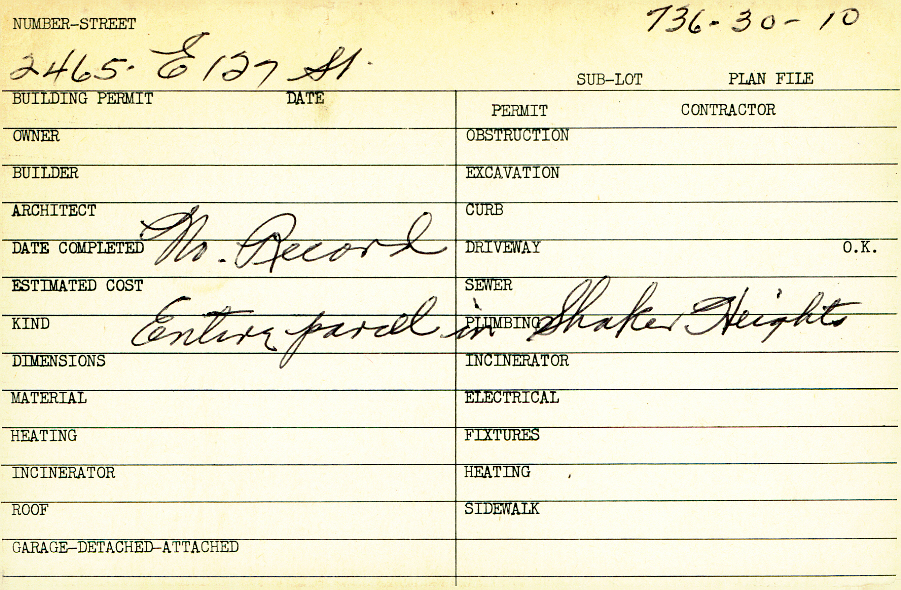 NUMBER-STREET 736-30-10
2465 E 127 St.
SUB-LOT PLAN FILE
BUILDING PERMIT DATE
PERMIT CONTRACTOR
OWNER OBSTRUCTION
BUILDER EXCAVATION
ARCHITECT CURB
No. Record
DATE COMPLETED DRIVEWAY O.K.
ESTIMATED COST SEWER
Entire parcel in Shaker Heights
KIND PLUMBING
DIMENSIONS INCINERATOR
MATERIAL ELECTRICAL
HEATING FIXTURES
INCINERATOR HEATING
ROOF SIDEWALK
GARAGE-DETACHED-ATTACHED